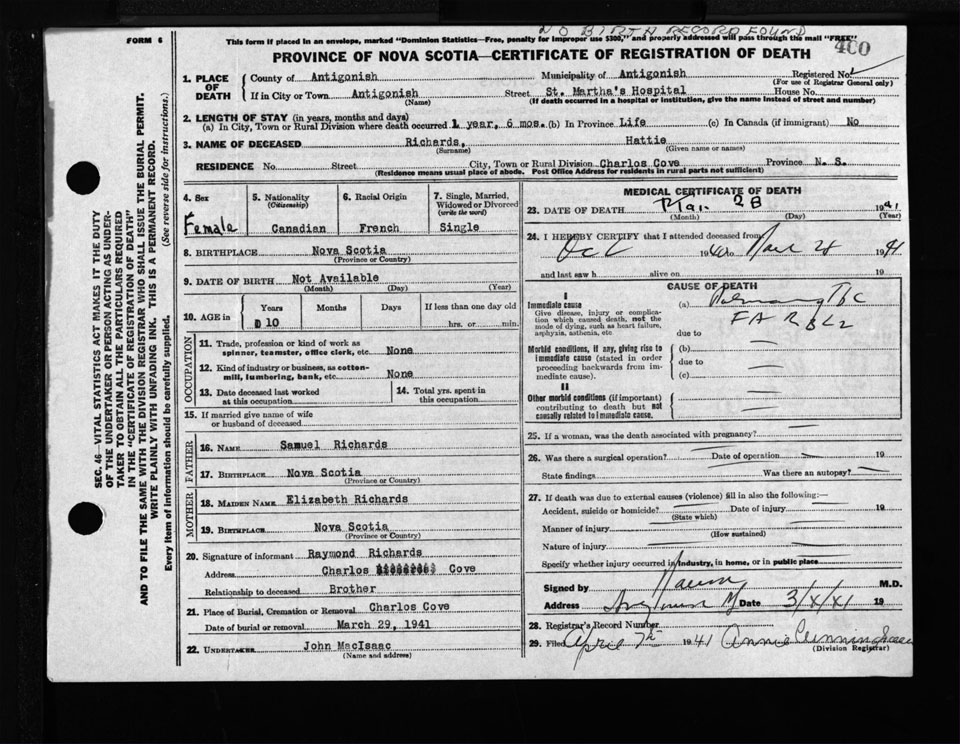 NO BIRTH RECORD FOUND
FORM 6
This form if placed in an envelope, marked "Dominion Statistics—Free, penalty for improper use $300," and properly addressed will pass through the mail "FREE"
400
PROVINCE OF NOVA SCOTIA—CERTIFICATE OF REGISTRATION OF DEATH
1. PLACE OF DEATH
County of Antigonish Municipality of Antigonish Registered No.
(For use of Registrar General only)
If in City or Town Antigonish Street St. Martha's Hospital House No.
(Name) (If death occurred in a hospital or institution, give the name instead of street and number)
2. LENGTH OF STAY (in years, months and days)
(a) In City, Town or Rural Division where death occurred 1 year, 6 mos. (b) In Province Life (c) In Canada (if immigrant) No
3. NAME OF DECEASED Richards, Hattie
(Surname) (Given name or names)
RESIDENCE No. Street City, Town or Rural Division Charlos Cove Province N. S.
(Residence means usual place of abode. Post Office Address for residents in rural parts not sufficient)
SEC. 46—VITAL STATISTICS ACT MAKES IT THE DUTY
OF THE UNDERTAKER OR PERSON ACTING AS UNDER-
TAKER TO OBTAIN ALL THE PARTICULARS REQUIRED
IN THE "CERTIFICATE OF REGISTRATION OF DEATH"
AND TO FILE THE SAME WITH THE DIVISION REGISTRAR WHO SHALL ISSUE THE BURIAL PERMIT.
WRITE PLAINLY WITH UNFADING INK. THIS IS A PERMANENT RECORD.
Every item of information should be carefully supplied. (See reverse side for instructions.)
4. Sex
Female
5. Nationality
(Citizenship)
Canadian
6. Racial Origin
French
7. Single, Married,
Widowed or Divorced
(write the word)
Single
8. BIRTHPLACE Nova Scotia
(Province or Country)
9. DATE OF BIRTH Not Available
(Month) (Day) (Year)
10. AGE in
Years Months Days If less than one day old
10 hrs. or min.
OCCUPATION
11. Trade, profession or kind of work as
spinner, teamster, office clerk, etc. None
12. Kind of industry or business, as cotton-
mill, lumbering, bank, etc. None
13. Date deceased last worked
at this occupation
14. Total yrs. spent in
this occupation
15. If married give name of wife
or husband of deceased
FATHER
16. NAME Samuel Richards
17. BIRTHPLACE Nova Scotia
(Province or Country)
MOTHER
18. MAIDEN NAME Elizabeth Richards
19. BIRTHPLACE Nova Scotia
(Province or Country)
20. Signature of informant Raymond Richards
Address Charlos Cove
Relationship to deceased Brother
21. Place of Burial, Cremation or Removal Charlos Cove
Date of burial or removal March 29, 1941
22. UNDERTAKER John MacIsaac
(Name and address)
MEDICAL CERTIFICATE OF DEATH
23. DATE OF DEATH Mar. 28 1941
(Month) (Day) (Year)
24. I HEREBY CERTIFY that I attended deceased from
Oct 1940 to Mar 28 1941
and last saw h alive on 19
CAUSE OF DEATH
I
Immediate cause
Give disease, injury or complica-
tion which caused death, not the
mode of dying, such as heart failure,
asphyxia, asthenia, etc.
(a) Pulmonary Tbc
FAR BL2
due to
Morbid conditions, if any, giving rise to
immediate cause (stated in order
proceeding backwards from im-
mediate cause).
(b)
due to
(c)
II
Other morbid conditions (if important)
contributing to death but not
causally related to immediate cause.
25. If a woman, was the death associated with pregnancy?
26. Was there a surgical operation? Date of operation 19
State findings Was there an autopsy?
27. If death was due to external causes (violence) fill in also the following:—
Accident, suicide or homicide? Date of injury 19
(State which)
Manner of injury
(How sustained)
Nature of injury
Specify whether injury occurred in industry, in home, or in public place
Signed by M.D.
Address Date 19
28. Registrar's Record Number
29. Filed April 7th 1941 Annie Cunningham
(Division Registrar)